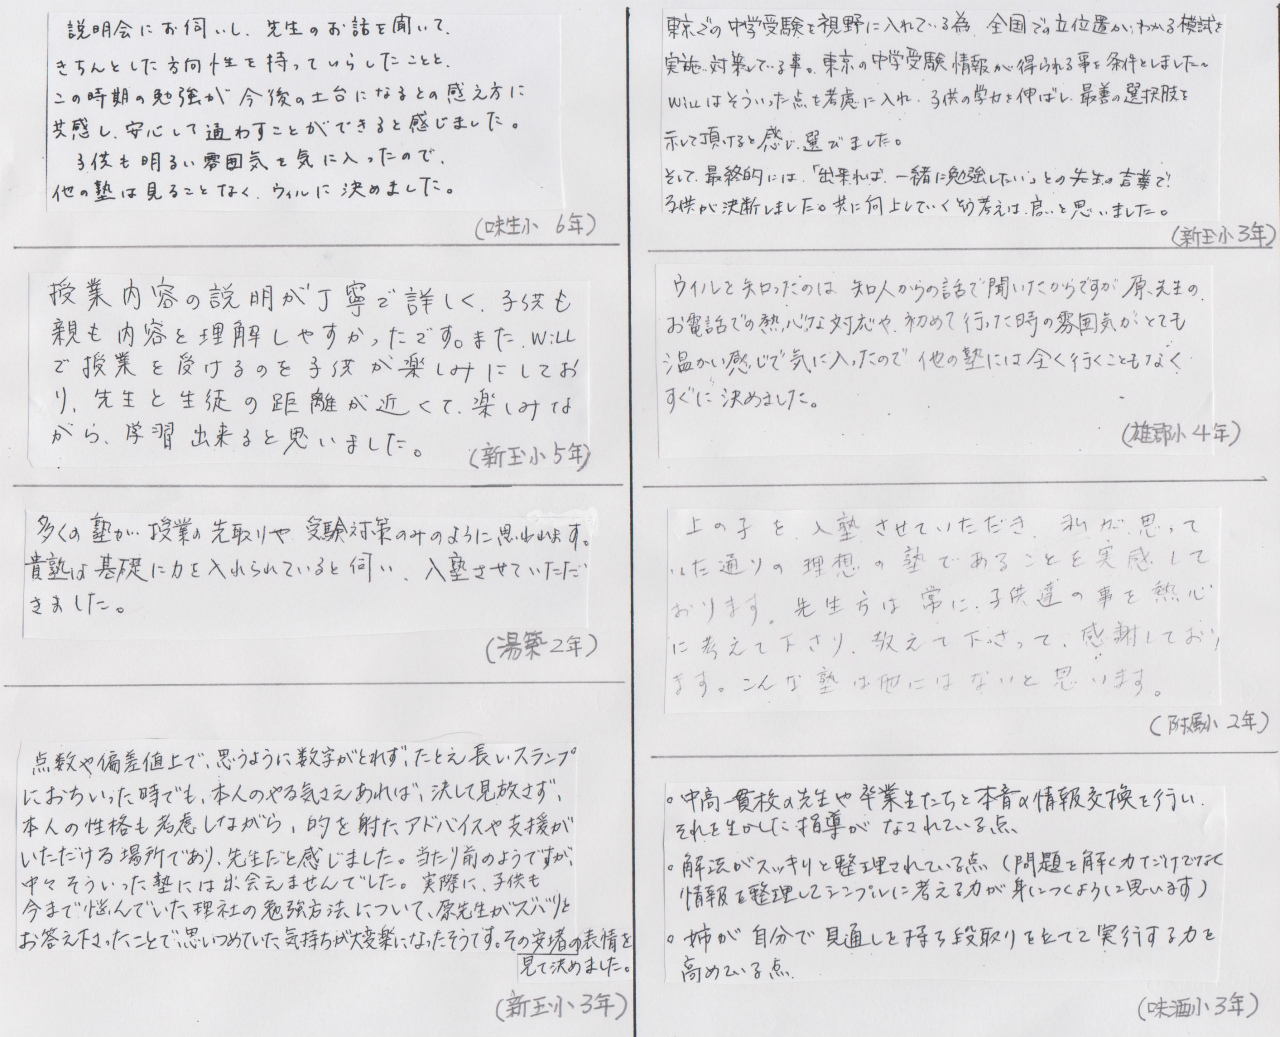 説明会にお伺いし、先生のお話を聞いて、
きちんとした方向性を持っていらしたことと、
この時期の勉強が今後の土台になるとの感え方に
共感し、安心して通わすことができると感じました。
子供も明るい雰囲気を気に入ったので、
他の塾は見ることなく、ウィルに決めました。
(味生小 6年)
授業内容の説明が丁寧で詳しく、子供も
親も内容を理解しやすかったです。また、WiLL
で授業を受けるのを子供が楽しみにしてお
り、先生と生徒の距離が近くて、楽しみな
がら、学習出来ると思いました。
(新玉小5年)
多くの塾が、授業の先取りや受験対策のみのように思われます。
貴塾は基礎に力を入れられていると伺い、入塾させていただ
きました。
(湯築2年)
点数や偏差値上で、思うように数字がとれず、たとえ長いスランプ
におちいった時でも、本人のやる気さえあれば、決して見放さず、
本人の性格も考慮しながら、的を射たアドバイスや支援が
いただける場所であり、先生だと感じました。当たり前のようですが、
中々そういった塾には出会えませんでした。実際に、子供も
今まで悩んでいた理社の勉強方法について、原先生がズバリと
お答え下さったことで、思いつめていた気持ちが大変楽になったそうです。その安堵の表情を
見て決めました。
(新玉小3年)
東京での中学受験を視野に入れている為、全国での立位置がわかる模試を
実施、対策している事。東京の中学受験情報が得られる事を条件としました。
WiLLはそういった点を考慮に入れ、子供の学力を伸ばし、最善の選択肢を
示して頂けると感じ、選びました。
そして、最終的には、「出来れば、一緒に勉強したい」との先生の言葉で、
子供が決断しました。共に向上していくという考えは、良いと思いました。
(新玉小3年)
ウィルを知ったのは 知人からの話で聞いたからですが 原先生の、
お電話での熱心な対応や、初めて行った時の雰囲気がとても
温かい感じで気に入ったので 他の塾には全く行くこともなく
すぐに決めました。
(雄郡小4年)
上の子を、入塾させていただき、私が思って
いた通りの理想の塾であることを実感して
おります。先生方は常に、子供達の事を熱心
に考えて下さり、教えて下さって、感謝しており
ます。こんな塾は他にはないと思います。
(附属小2年)
。中高一貫校の先生や卒業生たちと本音の情報交換を行い、
それを生かした指導がなされている点、
。解法がスッキリと整理されている点 (問題を解く力だけでなく
情報を整理してシンプルに考える力が身につくように思います)
。姉が自分で見通しを持ち段取りを立てて実行する力を
高めている点、
(味酒小3年)